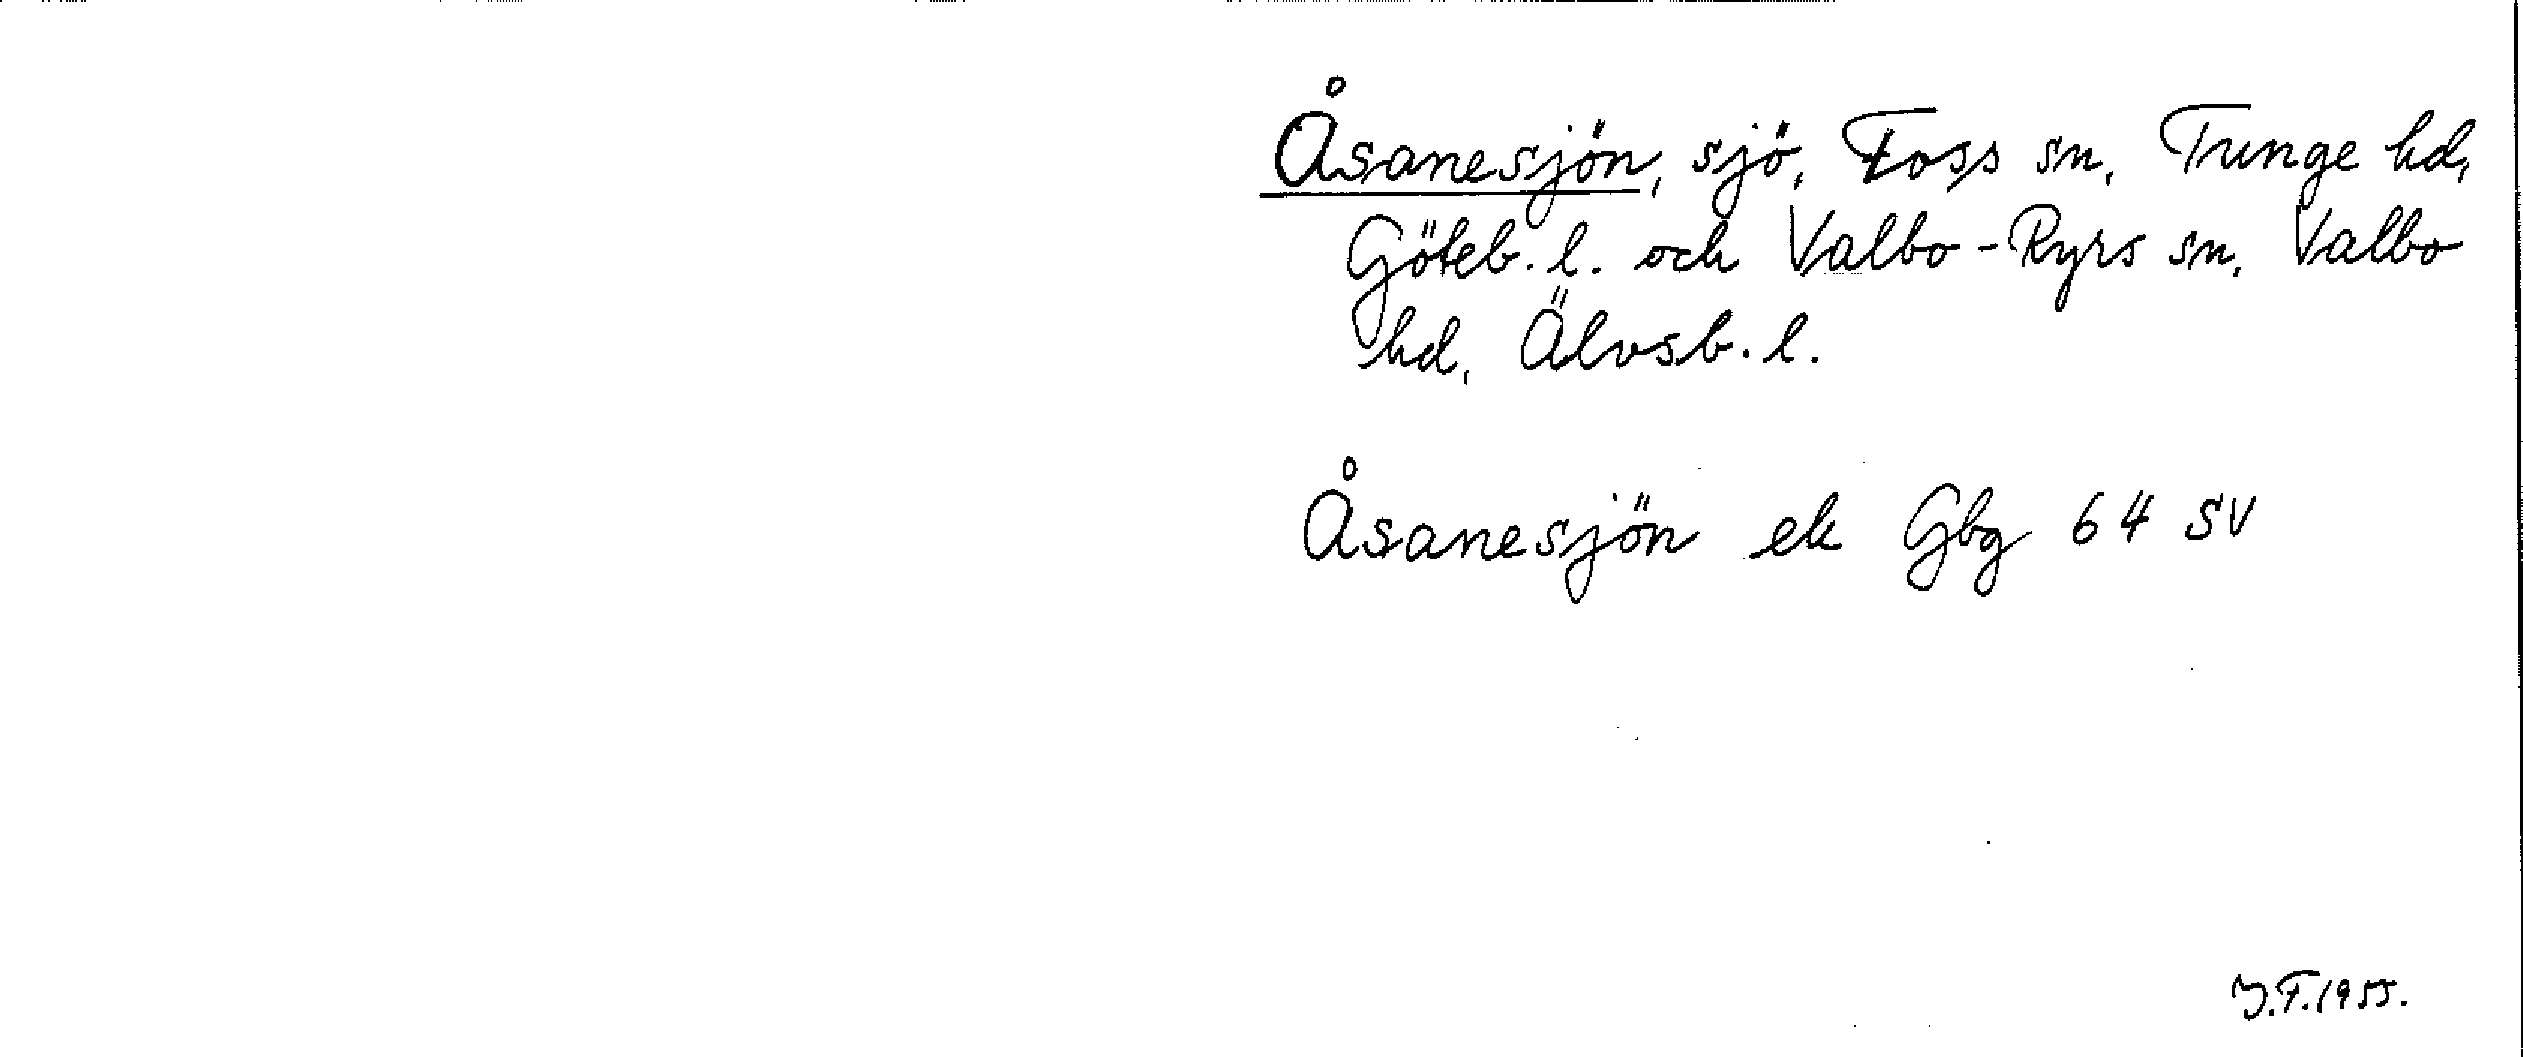 Åsanesjön, sjö, Foss sn, Tunge hd,
Göteb. l. och Valbo-Ryrs sn, Valbo
hd, Älvsb. l.
Åsanesjön ek Gbg 64 SV
Y.F. 1955.